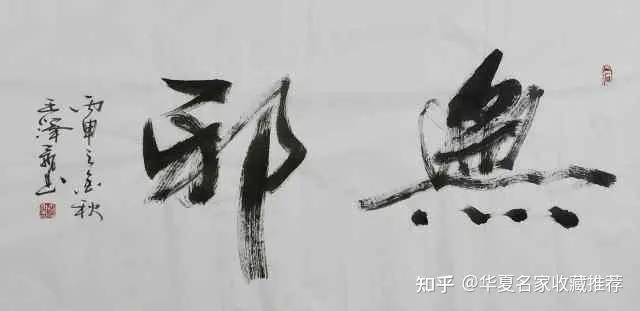 無邪
丙申之金秋
王澤
知乎 @华夏名家收藏推荐